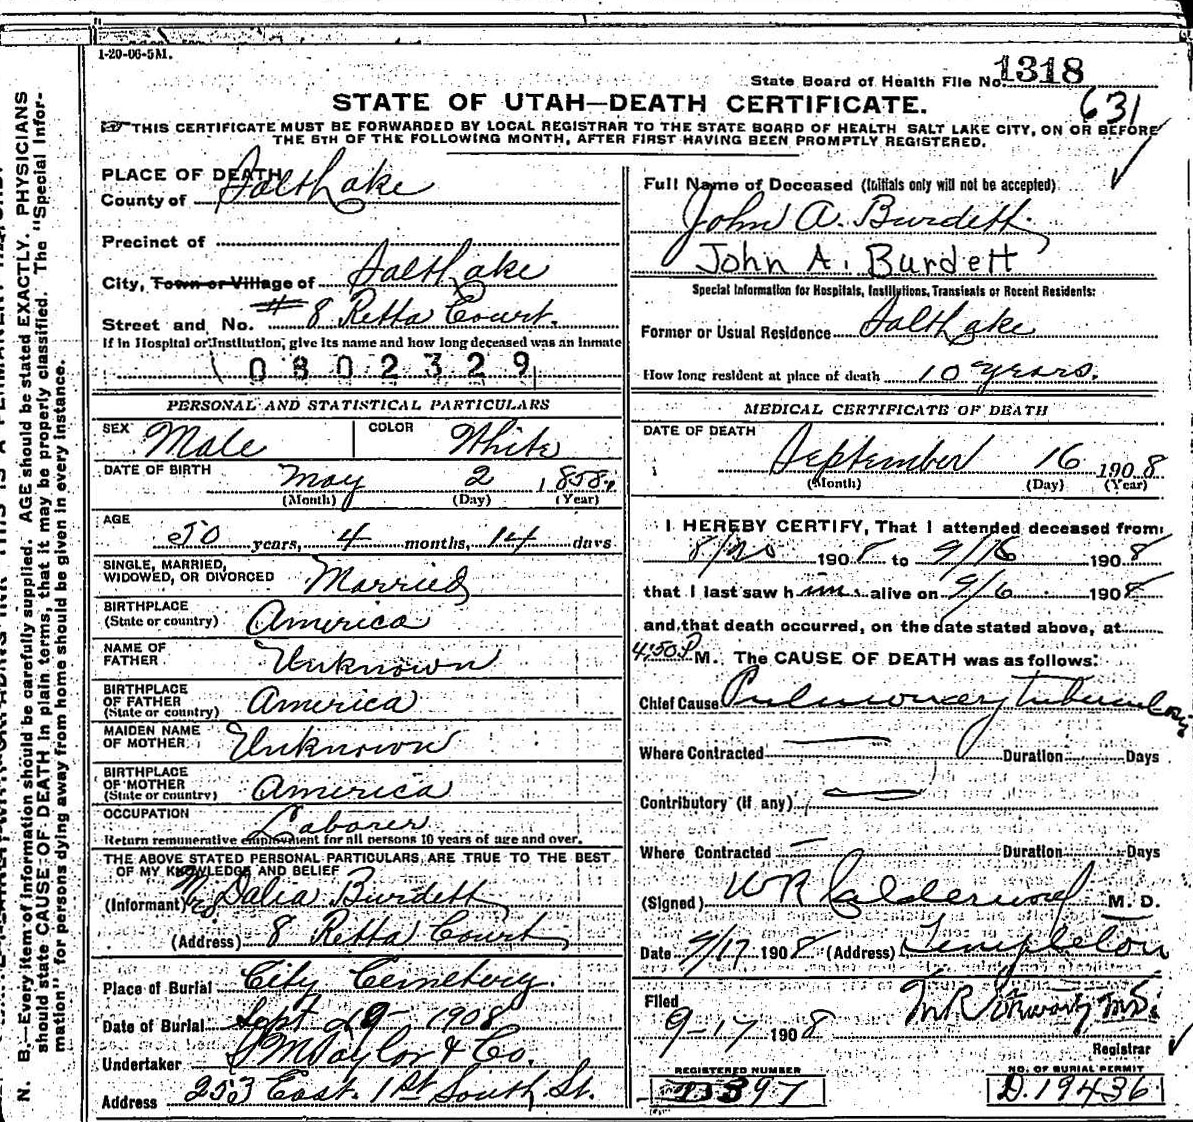 1-20-06-5M.
State Board of Health File No. 1318
631
STATE OF UTAH—DEATH CERTIFICATE.
THIS CERTIFICATE MUST BE FORWARDED BY LOCAL REGISTRAR TO THE STATE BOARD OF HEALTH SALT LAKE CITY, ON OR BEFORE
THE 5TH OF THE FOLLOWING MONTH, AFTER FIRST HAVING BEEN PROMPTLY REGISTERED.
PLACE OF DEATH
County of Salt Lake
Precinct of
City, Town or Village of Salt Lake
Street and No. # 8 Retta Court.
If in Hospital or Institution, give its name and how long deceased was an Inmate
0802329
PERSONAL AND STATISTICAL PARTICULARS
SEX Male COLOR White
DATE OF BIRTH May 2 1858.
(Month) (Day) (Year)
AGE
50 years, 4 months, 14 days
SINGLE, MARRIED,
WIDOWED, OR DIVORCED Married
BIRTHPLACE
(State or country) America
NAME OF
FATHER Unknown
BIRTHPLACE
OF FATHER
(State or country) America
MAIDEN NAME
OF MOTHER Unknown
BIRTHPLACE
OF MOTHER
(State or country) America
OCCUPATION Laborer
Return remunerative employment for all persons 10 years of age and over.
THE ABOVE STATED PERSONAL PARTICULARS ARE TRUE TO THE BEST
OF MY KNOWLEDGE AND BELIEF
(Informant) Mrs Dalia Burdett
(Address) 8 Retta Court
Place of Burial City Cemetery.
Date of Burial Sept 1908
Undertaker S M Taylor & Co.
Address 253 East. 1st South St.
Full Name of Deceased (Initials only will not be accepted)
John A. Burdett.
John A. Burdett
Special Information for Hospitals, Institutions, Transients or Recent Residents:
Former or Usual Residence Salt Lake
How long resident at place of death 10 years.
MEDICAL CERTIFICATE OF DEATH
DATE OF DEATH
September 16 1908
(Month) (Day) (Year)
I HEREBY CERTIFY, That I attended deceased from
8/20 1908 to 9/16 1908
that I last saw him alive on 9/6 1908
and that death occurred, on the date stated above, at
4:50 P M. The CAUSE OF DEATH was as follows:
Chief Cause Pulmonary Tuberculosis
Where Contracted Duration Days
Contributory (if any)
Where Contracted Duration Days
(Signed) W R Calderwood M. D.
Date 9/17 1908 (Address) Templeton
Filed
9-17 1908
Registrar
REGISTERED NUMBER
NO. OF BURIAL PERMIT
D. 19436
N. B.—Every item of information should be carefully supplied. AGE should be stated EXACTLY. PHYSICIANS
should state CAUSE OF DEATH in plain terms, that it may be properly classified. The "Special Infor-
mation" for persons dying away from home should be given in every instance.